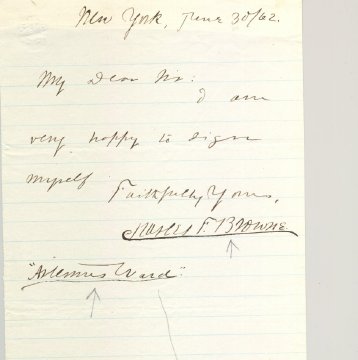 New York, June 30/62.
My Dear Sir:
I am
very happy to sign
myself
Faithfully Yours,
Charles F. Browne.
"Artemus Ward".